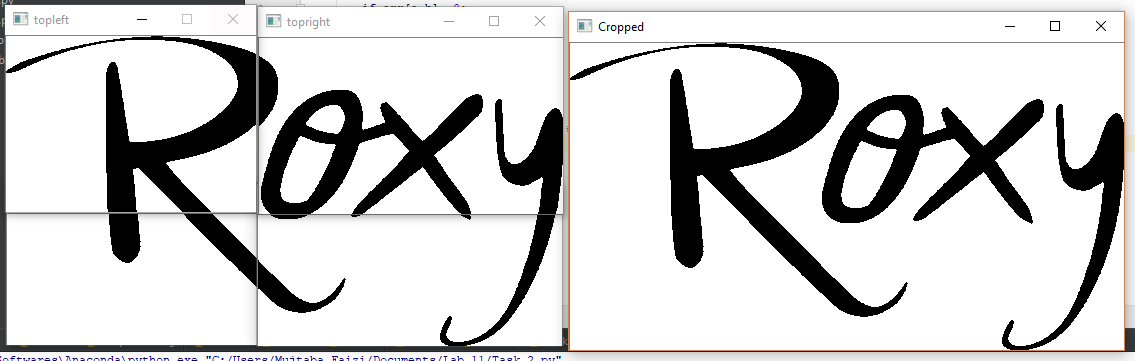 topleft
topright
Cropped
Roxy
Roxy
Softwares\Anaconda\python.exe "C:/Users/Mujtaba Faizi/Documents/Lab 11/Task 2.py"